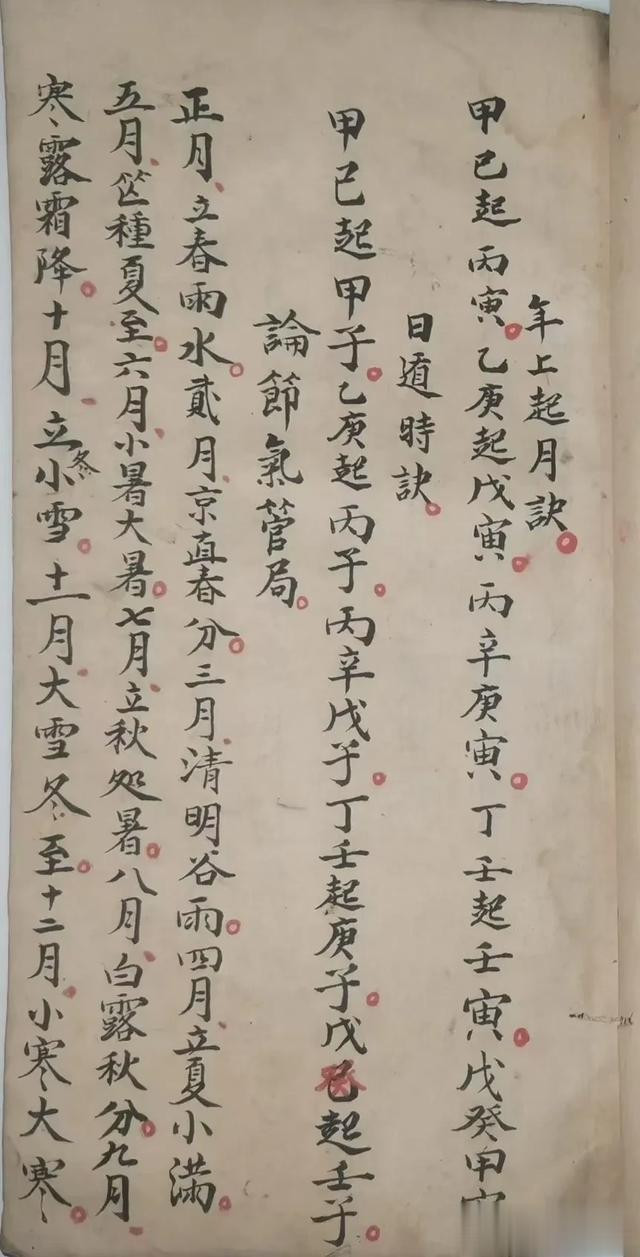 年上起月訣
甲己起丙寅乙庚起戊寅丙辛庚寅丁壬起壬寅戊癸甲寅
日遁時訣
甲己起甲子乙庚起丙子丙辛戊子丁壬起庚子戊癸起壬子
論節氣管局
正月立春雨水貳月京直春分三月清明谷雨四月立夏小滿
五月芒種夏至六月小暑大暑七月立秋处暑八月白露秋分九月
寒露霜降十月立冬小雪十一月大雪冬至十二月小寒大寒